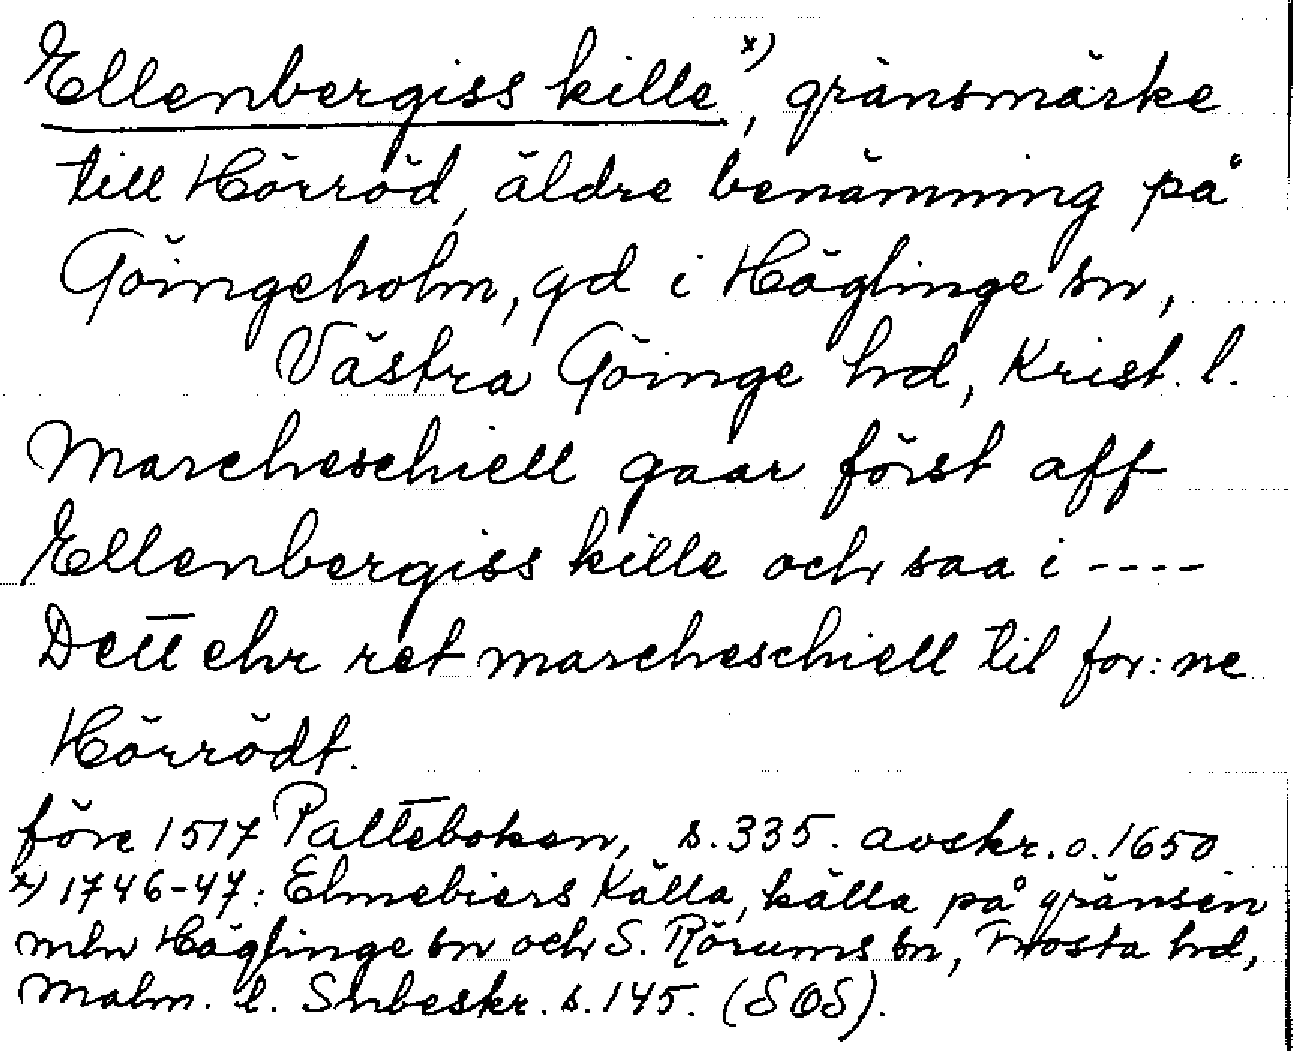 Ellenbergiss kille x), gränsmärke
till Hörröd, äldre benämning på
Göingeholm, gd i Häglinge sn,
Västra Göinge hd, Krist. l.
Marcheschiell gaar först aff
Ellenbergiss kille och saa i ----
Dett ehr ret marcheschiell til for:ne
Hörrödt.
före 1517 Palteboken, s. 335. avskr. o. 1650
x) 1746-47: Elmebiers Källa, källa på gränsen
mln Häglinge sn och S. Rörums sn, Frosta hd,
Malm. l. Snbeskr. s. 145. (SOS).